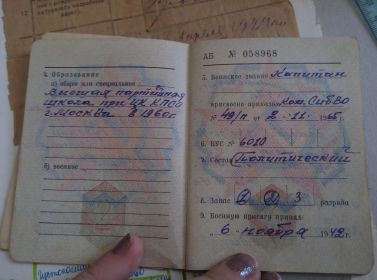 4. Образование
а) общее или специальное
Высшая партийная
школа при ЦК КПСС
г. Москва в 1960 г.
б) военное
АБ № 058968
5. Воинское звание Капитан
присвоено приказом Ком. СибВО
№ 49/п от 2.11.1965
6. ВУС № 6010
7. Состав Политический
8. Запас 3 разряда
9. Военную присягу принял
„6“ ноября 1942 г.